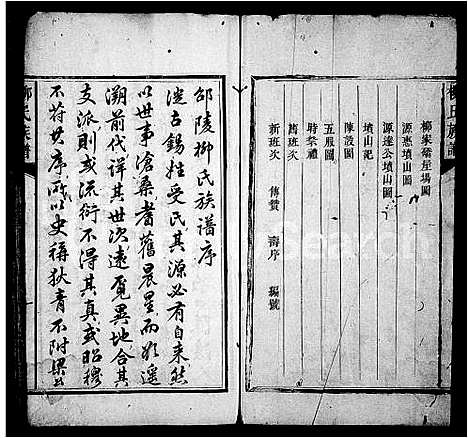 柳氏族譜
柳家衕屋場圖
源惠墳山圖
源遠公墳山圖
墳山記
陳設圖
五服圖
時祭禮
舊班次
新班次　傳贊　壽序　編號
邵陵柳氏族譜序
從古錫姓受氏其源必有自來然
以世事滄桑耆舊晨星而欲遥
溯前代詳其世次遠覓異地合其
支派則或流衍不得其真或昭穆
不符其序所以史稱狄青不附梁公
柳氏族譜